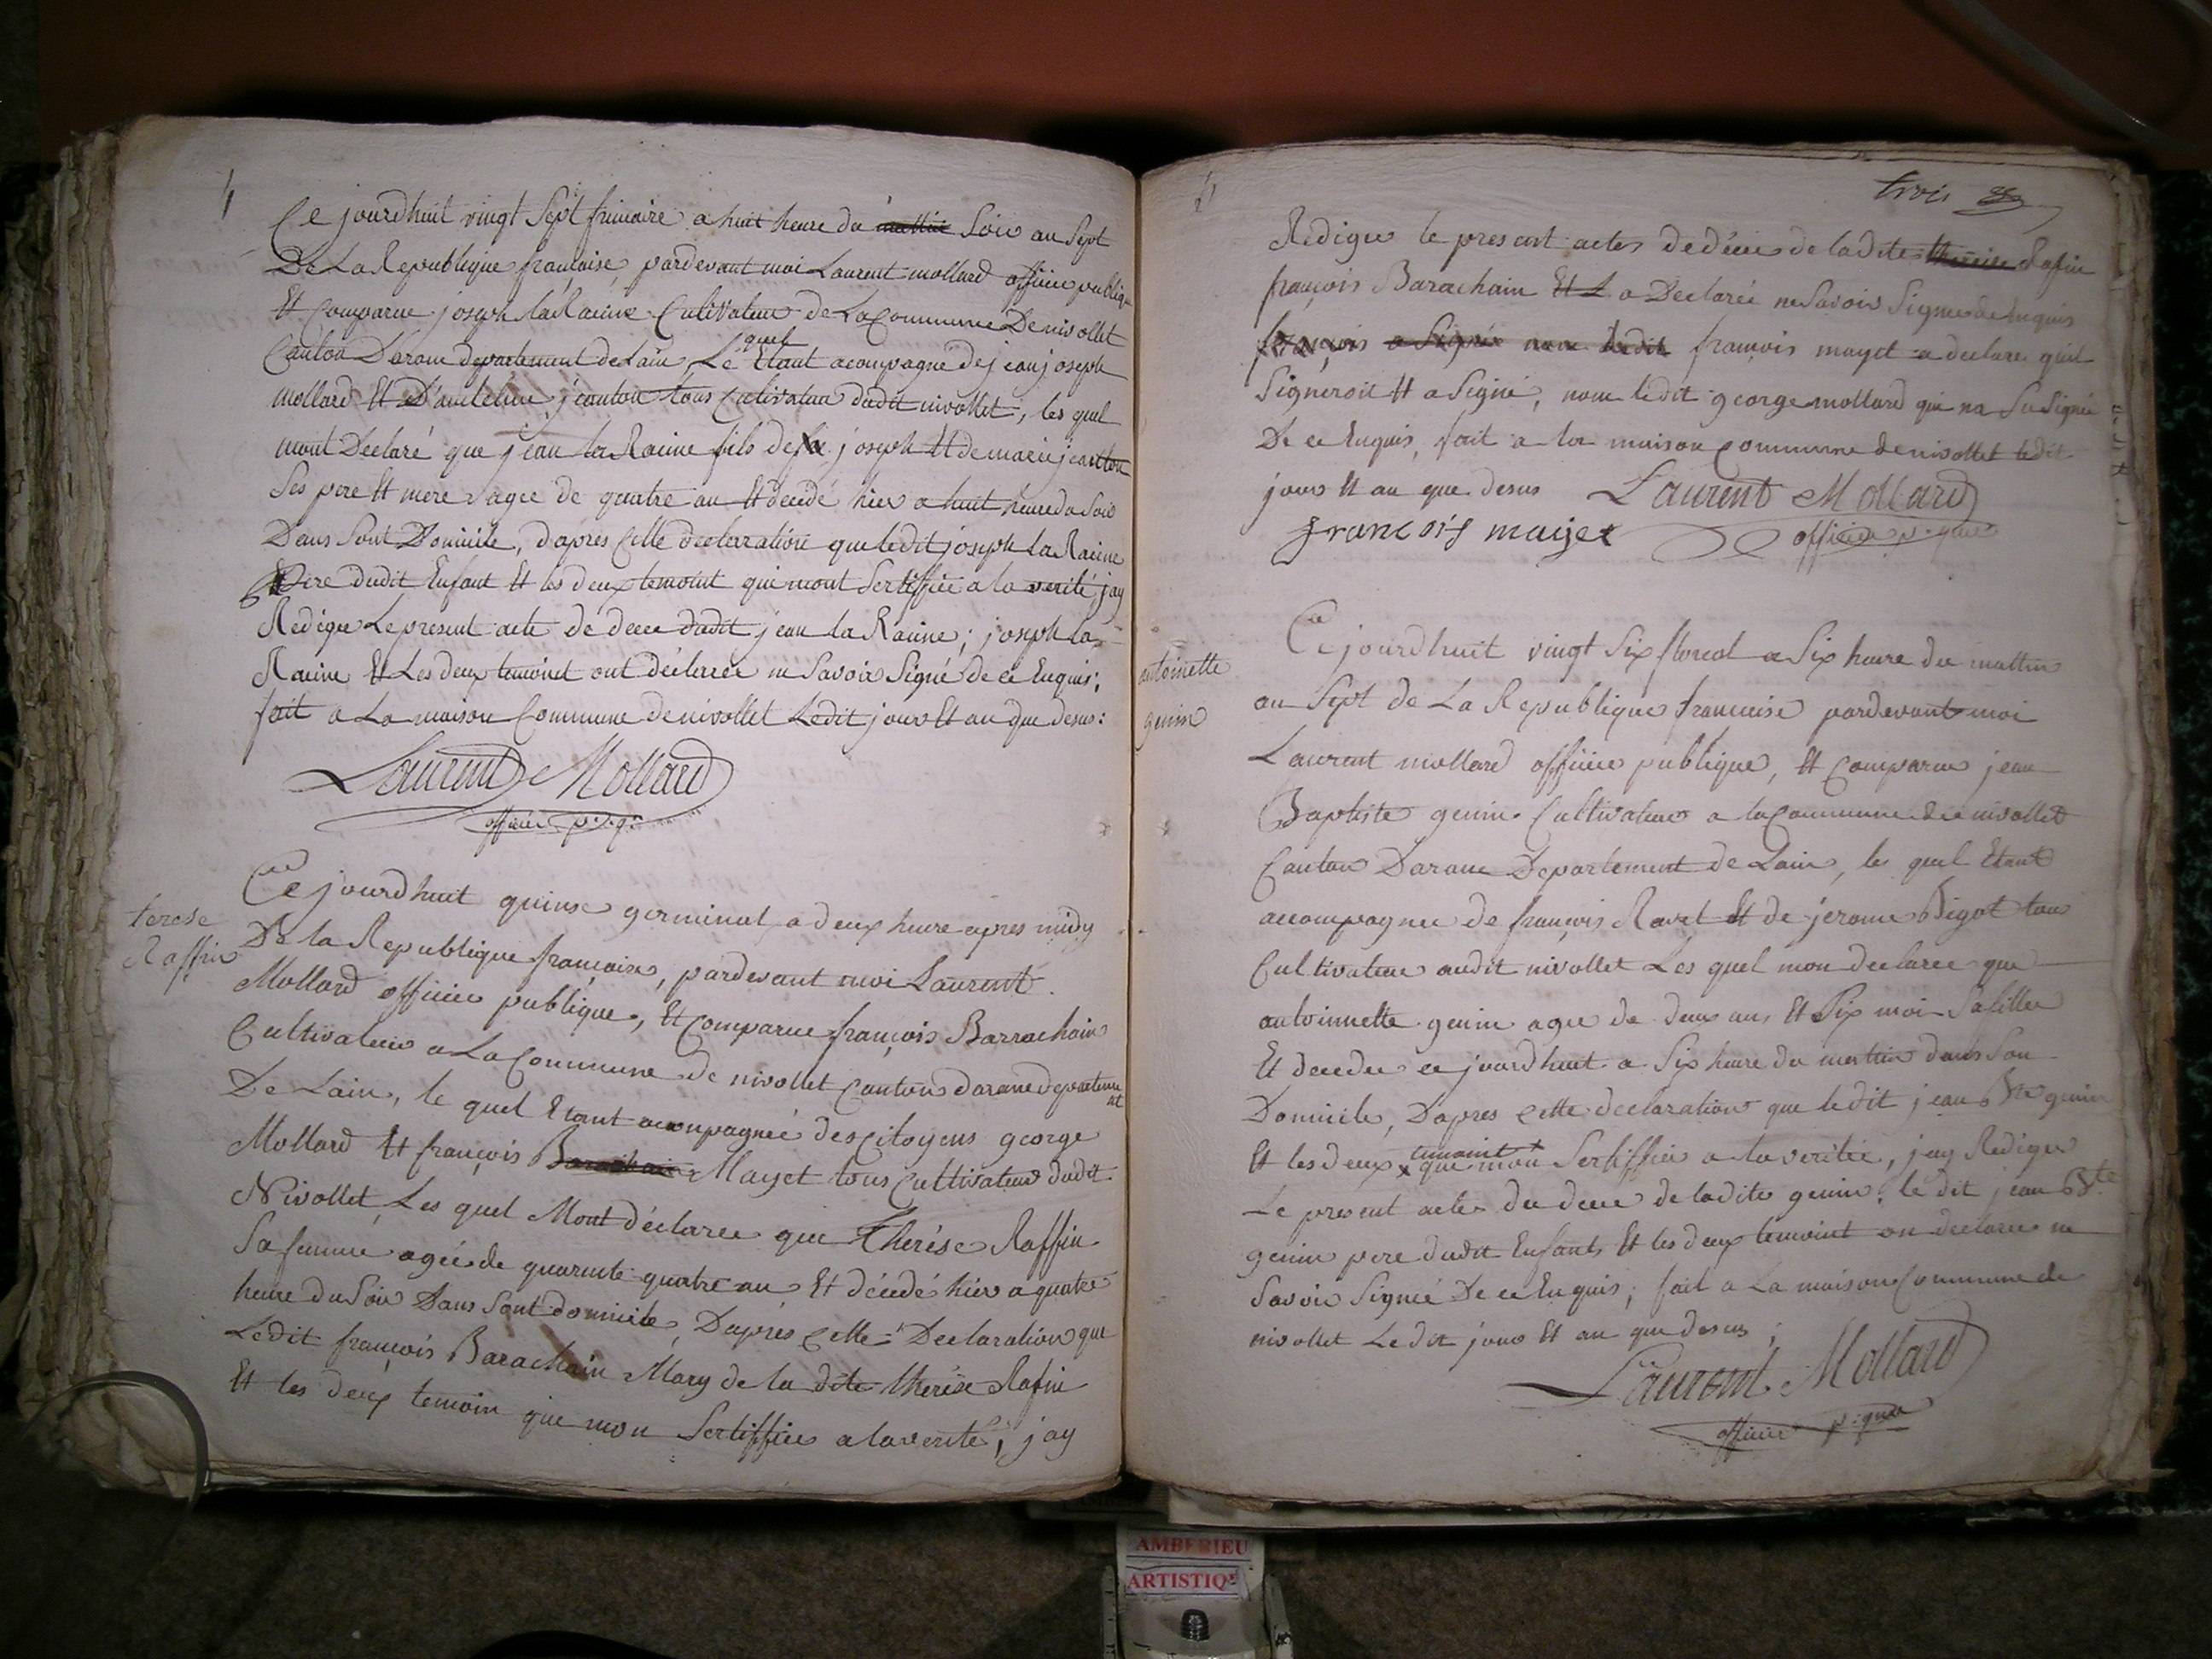 Ce jourdhuit vingt Sept frimaire a huit heure du mattin Soir an Sept
De La Republique françaisé pardevant moi Laurent mollard officier publiq
Et Comparue joseph la Racine Cultivateur de La Commune De nivollet
Canton Darane departement de Lain, Le quel Etant acompagné de jean joseph
mollard Et D'anthelme jeanton tous Cultivateur dudit nivollet, les quel
mont Declaré que jean la Racine fils de joseph Et de marie jeanton
Ses pere Et mere agee de quatre an Et decedé hier a huit heure du Soir
Dans Sont Domicile, d'apres Cette declaration que ledit joseph La Racine
Pere dudit Enfant Et les deux temoint qui mont Sertiffiée a la verité, jay
Redigee Le present acte de decee dudit jean la Racine; joseph La
Racine Et Les deux temoint ont déclaree ne Savoir Signé de ce Enquis;
fait a La maison Commune de nivollet Ledit jour Et an que desus:
Laurent Mollard
officier p.q.
terese
Raffin
Ce jourdhuit quinse germinal a deux heure apres midy
De la Republique françaire, pardevant moi Laurent
Mollard officier publique, Et Comparue françois Barrachain
Cultivateur a La Commune de nivollet Canton darane departeme
nt
De Lain, le quel Etant acompagnée des Citoyens george
Mollard Et françois Barachain Mayet tous Cultivateur dudit
Nivollet Les quel Mont déclaree que Therése Raffin
Sa femme agée de quarente quatre an Et décédé hier a quatre
heure du Soir Dans Sont domicile, D'apres Cette Declaration que
Ledit françois Barachain Mary de la dite therése Rafin
Et les deux temoin que mon Sertiffiee a la verité, jay
trois
Redigee le present actes de décée de ladite therese Rafin
françois Barachain Et L a Declarée ne Savoir Signer de Enquis
françois a Signée nom ledit françois mayet a declare quil
Signeroit Et a Signé, nom ledit george mollard qui na Su Signée
De ce Enquis, fait a la maison Commune de nivollet ledit
jour Et an que desus Laurent Mollard
françois maijet officier p.que
antoinette
genin
Ce jourdhuit vingt Six floreal a Six heure du mattin
an Sept de La Republique francaise pardevant moi
Laurent mollard officier publique, Et Comparue jean
Baptiste genin Cultivateur a la Commune de nivollet
Canton Darane Departement de Lain, le quel Etant
accompagnee de françois Ravet Et de jerome Bigot tous
Cultivateur audit nivollet Les quel mon declaree que
antoinnette genin agee de deux ans Et Six moi Sa fillee
Et decedee ce jourdhuit a Six heure du mattin dans Son
Domicile, D'apres Cette declaration que ledit jean Bte genin
Et les deux temoint que mon Sertiffiee a la veritée, jay Redigee
Le present actes du decee de ladite genin; le dit jean Bte
genin pere dudit Enfants Et les deux temoint on declaree ne
Savoir Signée De ce Enquis; fait a La maison Commune de
nivollet Le dit jour Et an que desus;
Laurent Mollard
officier p.que
AMBERIEU
ARTISTIQ